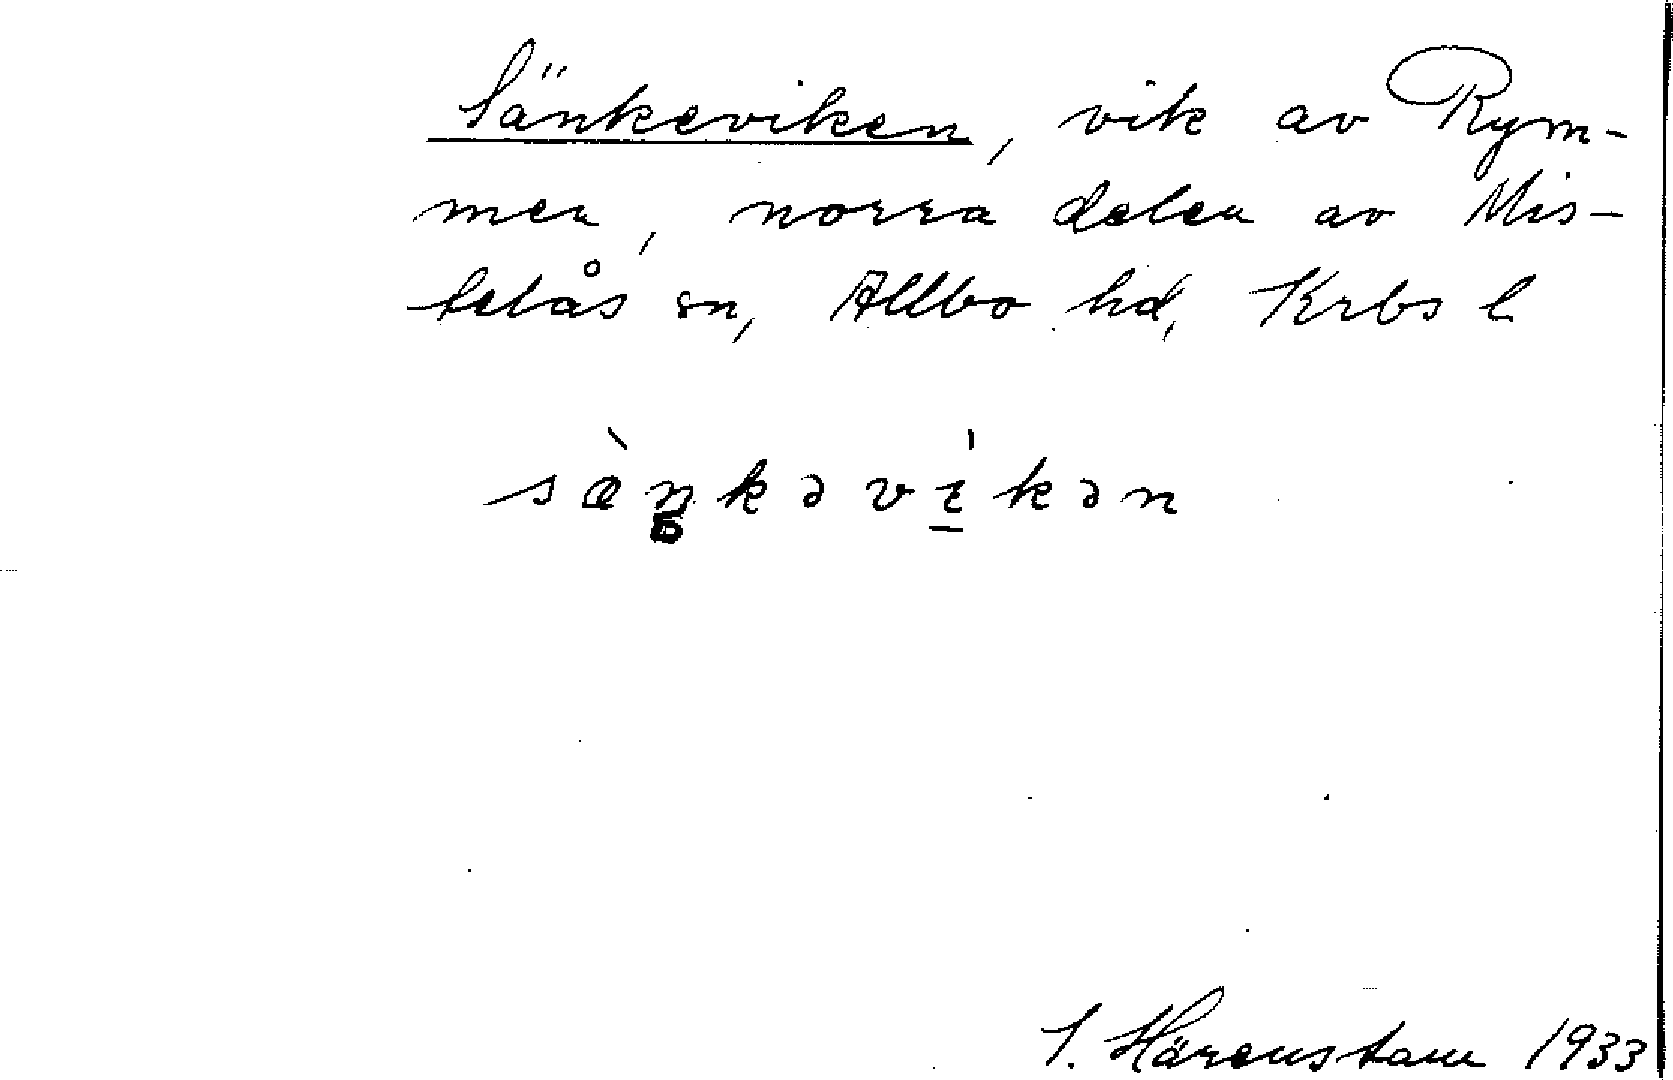 Sänkeviken, vik av Rym-
men, norra delen av Mis-
telås sn, Allbo hd, Krbs l
sæ̀ŋkəvi̠kən
S. Härenstam 1933